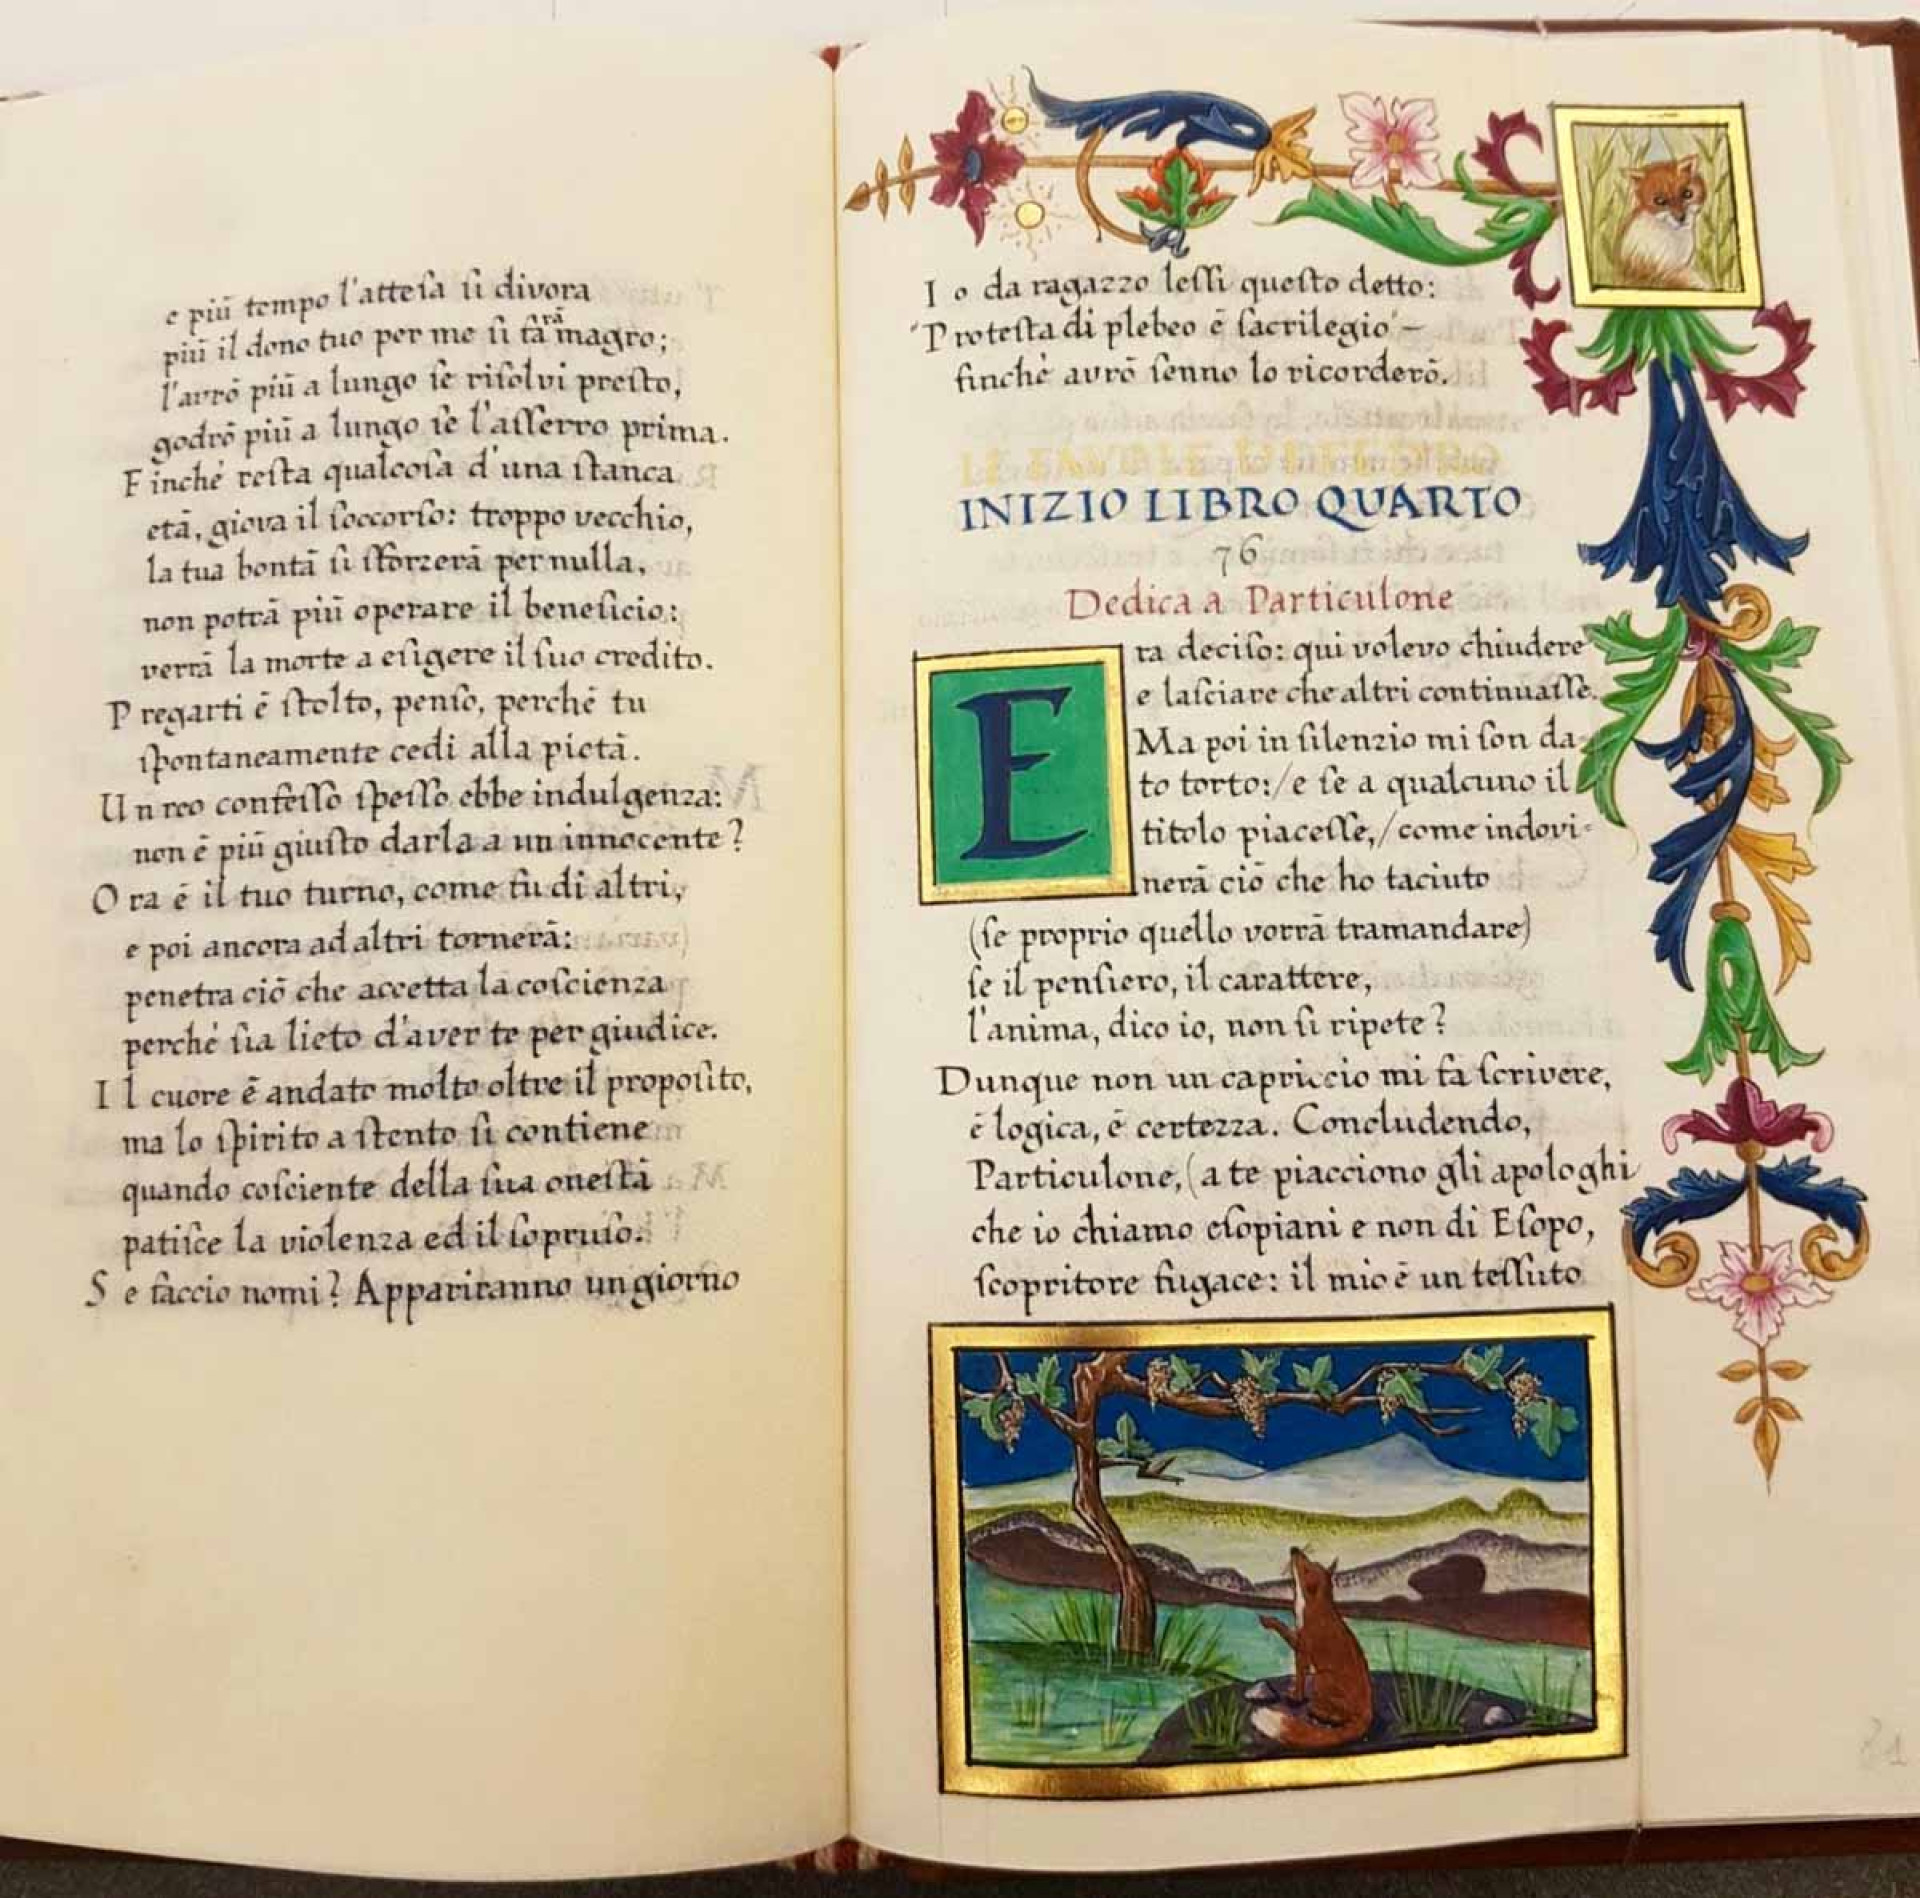 e piū tempo l'atteſa ſi divora
piū il dono tuo per me ſi farā magro;
l'avrō piū a lungo ſe riſolvi preſto,
godrō piū a lungo ſe l'afferro prima.
Finché reſta qualcoſa d'una ſtanca
etā, giova il ſoccorſo: troppo vecchio,
la tua bontā ſi ſforzerā per nulla,
non potrā piū operare il beneficio:
verrā la morte a eſigere il ſuo credito.
Pregarti ē ſtolto, penſo, perché tu
ſpontaneamente cedi alla pietā.
Un reo confeſſo ſpeſſo ebbe indulgenza:
non ē piū giuſto darla a un innocente?
Ora ē il tuo turno, come fu di altri,
e poi ancora ad altri tornerā:
penetra ciō che accetta la coſcienza
perché ſia lieto d'aver te per giudice.
Il cuore ē andato molto oltre il propoſito,
ma lo ſpirito a ſtento ſi contiene
quando coſciente della ſua oneſtā
patiſce la violenza ed il ſopruſo.
Se faccio nomi? Appariranno un giorno
Io da ragazzo leſſi queſto detto:
'Proteſta di plebeo ē ſacrilegio' –
finché avrō ſenno lo ricorderō.
LE FAVOLE DI FEDRO
INIZIO LIBRO QUARTO
76
Dedica a Particulone
Era deciſo: qui volevo chiudere
e laſciare che altri continuaſſe.
Ma poi in ſilenzio mi ſon da-
to torto:/e ſe a qualcuno il
titolo piaceſſe,/come indovi-
nerā ciō che ho taciuto
(ſe proprio quello vorrā tramandare)
ſe il penſiero, il carattere,
l'anima, dico io, non ſi ripete?
Dunque non un capriccio mi fa ſcrivere,
ē logica, ē certezza. Concludendo,
Particulone, (a te piacciono gli apologhi
che io chiamo eſopiani e non di Eſopo,
ſcopritore fugace: il mio ē un teſſuto
81